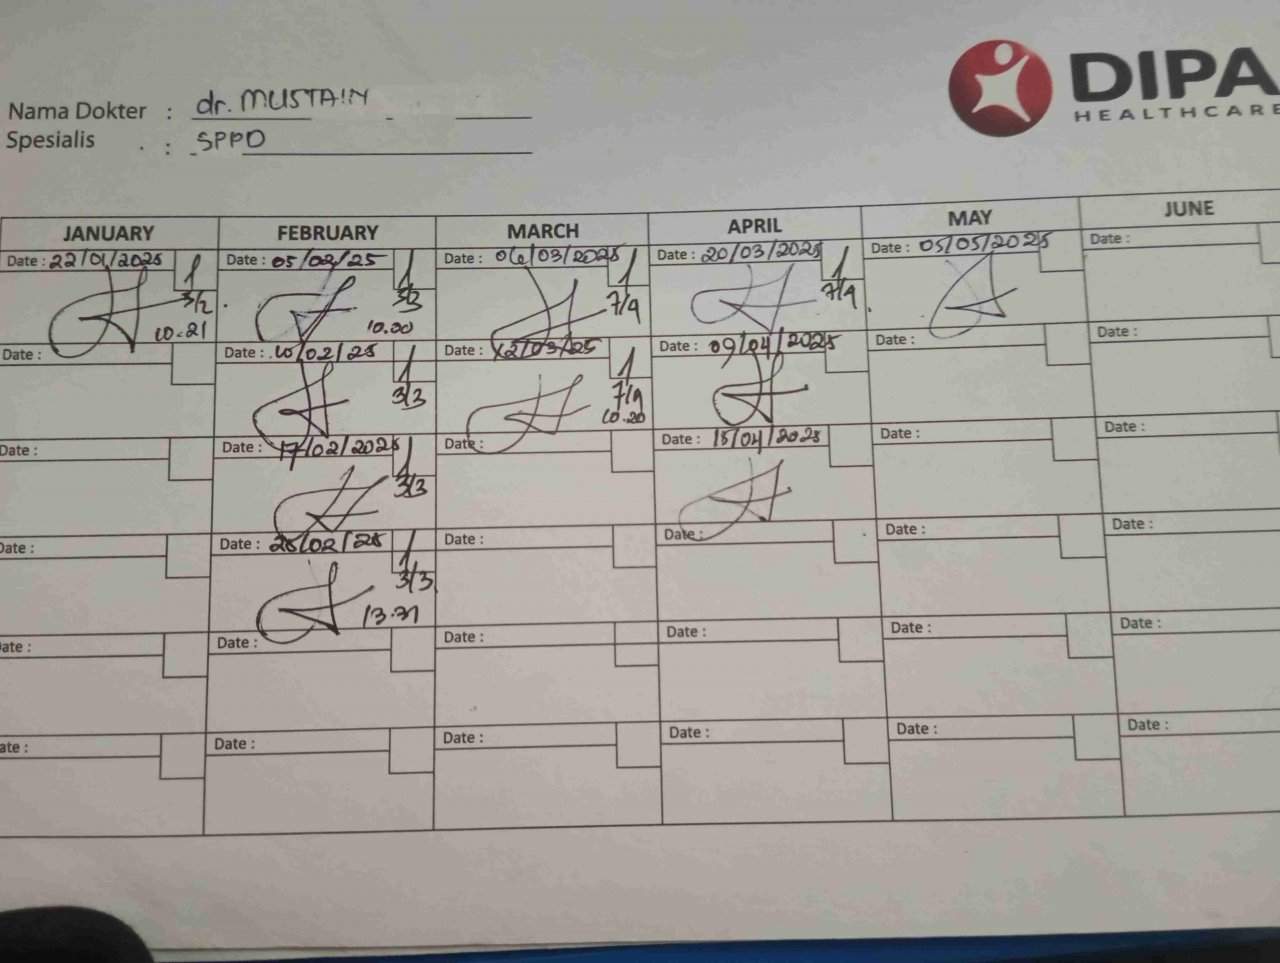 DIPA
HEALTHCARE
Nama Dokter : dr. MUSTAIN
Spesialis : SPPD
JANUARY FEBRUARY MARCH APRIL MAY JUNE
Date : 22/01/2025 Date : 05/02/25 Date : 06/03/2025 Date : 20/03/2025 Date : 05/05/2025 Date :
3/2 3/3 7/4 7/4
10.21 10.00
Date : Date : 10/02/25 Date : 12/03/25 Date : 09/04/2025 Date : Date :
3/3 7/4
10.20
Date : Date : 17/02/2025 Date : Date : 15/04/2025 Date : Date :
3/3
Date : Date : 25/02/25 Date : Date : Date : Date :
3/3
13.31
Date : Date : Date : Date : Date : Date :
Date : Date : Date : Date : Date : Date :